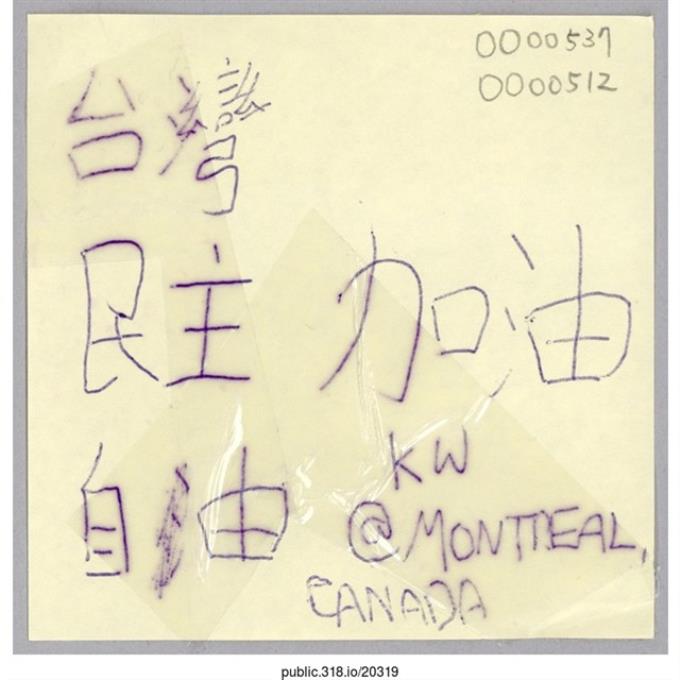 0000537
0000512
台灣
民主 加油
自由 KW
@MONTREAL,
CANADA
public.318.io/20319